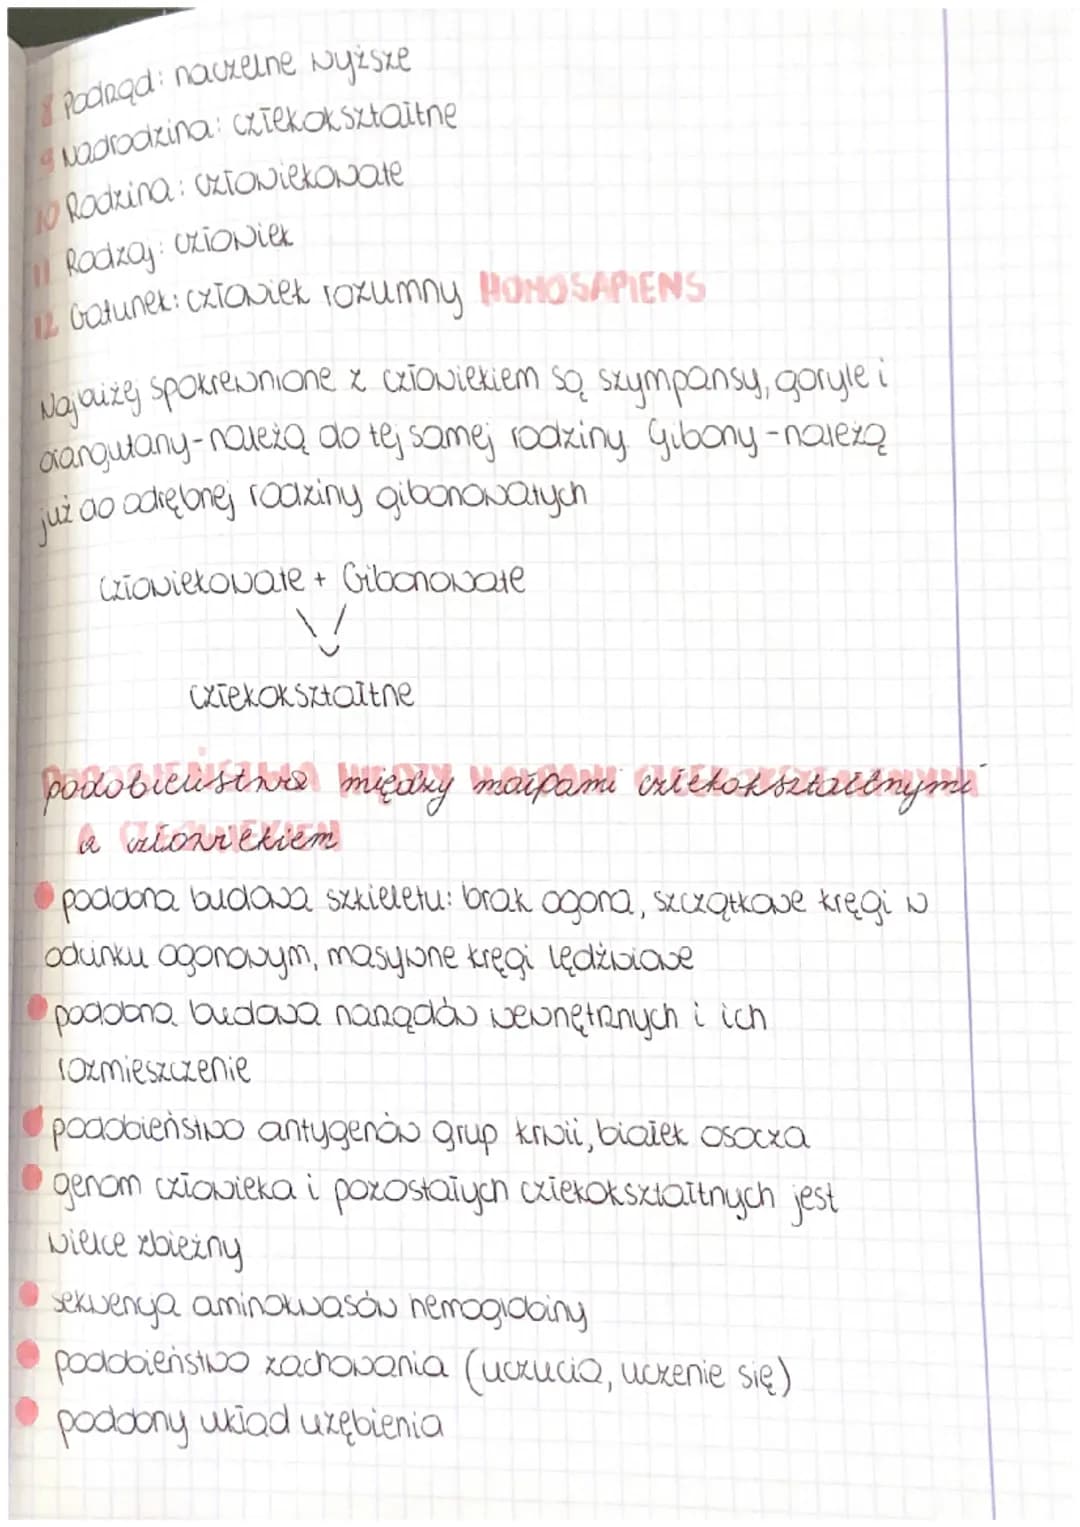 8 Podrząd: naczelne wyższe
9 Nadrodzina: człekokształtne
10 Rodzina: człowiekowate
11 Rodzaj: człowiek
12 Gatunek: człowiek rozumny HOMOSAPIENS
Najbliżej spokrewnione z człowiekiem są szympansy, goryle i
orangutany - należą do tej samej rodziny. Gibony - należą
już do odrębnej rodziny gibonowatych
Człowiekowate + Gibonowate
człekokształtne
podobieństwa między małpami człekokształtnymi
a człowiekiem
podobna budowa szkieletu: brak ogona, szczątkowe kręgi w
odcinku ogonowym, masywne kręgi lędźwiowe
podobna budowa narządów wewnętrznych i ich
rozmieszczenie
podobieństwo antygenów grup krwii, białek osocza
genom człowieka i pozostałych człekokształtnych jest
wielce zbieżny
sekwencja aminokwasów hemoglobiny
podobieństwo zachowania (uczucia, uczenie się)
podobny układ uzębienia